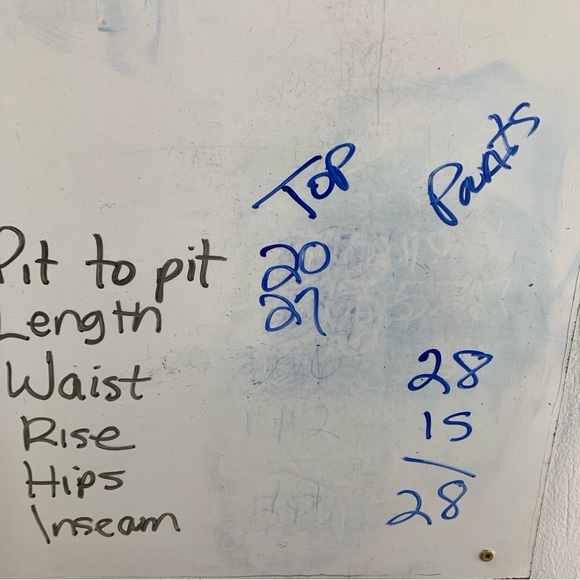 Top Pants
Pit to pit 20
Length 27
Waist 28
Rise 15
Hips /
Inseam 28